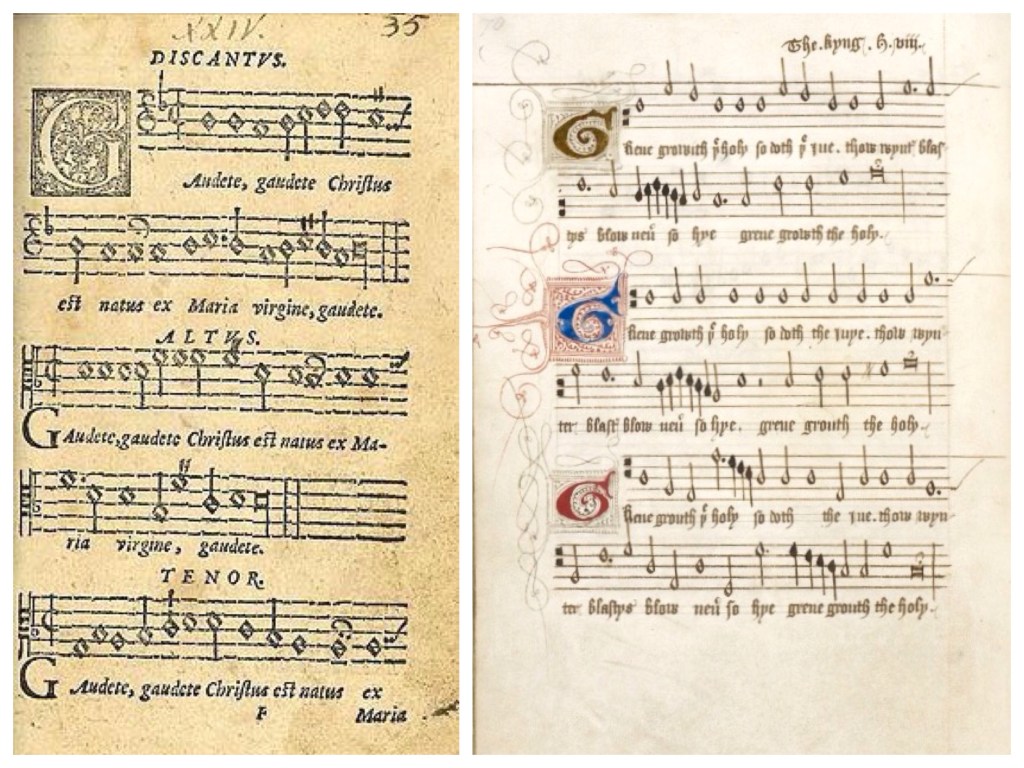 XXIV.
35
DISCANTVS.
GAudete, gaudete Chriſtus
eſt natus ex Maria virgine, gaudete.
ALTVS.
GAudete, gaudete Chriſtus eſt natus ex Ma-
ria virgine, gaudete.
TENOR.
GAudete, gaudete Chriſtus eſt natus ex
F Maria
The . kyng . h . viij .
Grene growith þe holy so doth þe iue . thow wynter blas
tys blow neuer so hye grene growth the holy .
Grene growth þe holy so doth the iuye . thow wyn
ter blast blow neuer so hye . grene grouth the holy .
Grene grouth þe holy so doth the iue . thow wyn
ter blastys blow neuer so hye grene grouth the holy .